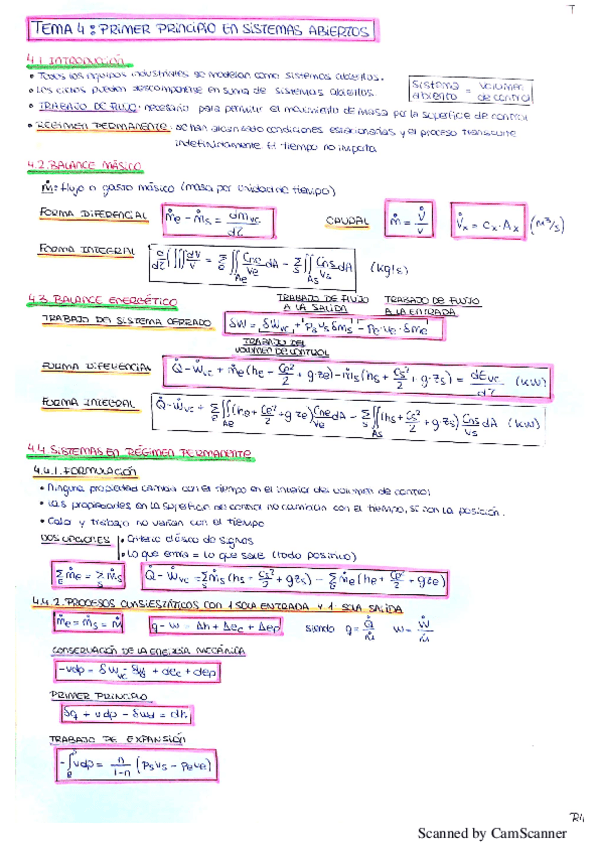 T
TEMA 4: PRIMER PRINCIPIO EN SISTEMAS ABIERTOS
4.1. INTRODUCCIÓN
• Todos los equipos industriales se modelan como sistemas abiertos.
• Los ciclos pueden descomponerse en suma de sistemas abiertos
Sistema abierto = volumen de control
• TRABAJO DE FLUJO: necesario para permitir el movimiento de masa por la superficie de control
• RÉGIMEN PERMANENTE: se han alcanzado condiciones estacionarias y el proceso transcurre
indefinidamente. El tiempo no importa
4.2. BALANCE MÁSICO
ṁ: flujo o gasto másico (masa por unidad de tiempo)
FORMA DIFERENCIAL ṁe - ṁs = dmvc/dτ CAUDAL ṁ = V̇/v V̇x = cx · Ax (m³/s)
FORMA INTEGRAL d/dτ ∭ dV/v = Σe ∬Ae Cne/ve dA - Σs ∬As Cns/vs dA (kg/s)
4.3. BALANCE ENERGÉTICO
TRABAJO DE FLUJO A LA SALIDA TRABAJO DE FLUJO A LA ENTRADA
TRABAJO DEL SISTEMA CERRADO δW = δWvc + Ps vs δms - Pe · ve · δme
TRABAJO DEL VOLUMEN DE CONTROL
FORMA DIFERENCIAL Q̇ - Ẇvc + ṁe(he + ce²/2 + g·ze) - ṁs(hs + cs²/2 + g·zs) = dEvc/dτ (kW)
FORMA INTEGRAL Q̇ - Ẇvc + Σe ∬Ae (he + ce²/2 + g ze) Cne/ve dA - Σs ∬As (hs + cs²/2 + g zs) Cns/vs dA (kW)
4.4. SISTEMAS EN RÉGIMEN PERMANENTE
4.4.1. FORMULACIÓN
• Ninguna propiedad cambia con el tiempo en el interior del volumen de control
• Las propiedades en la superficie de control no cambian con el tiempo, sí con la posición.
• Calor y trabajo no varían con el tiempo
DOS OPCIONES • Criterio clásico de signos
• Lo que entra = lo que sale (todo positivo)
Σe ṁe = Σs ṁs Q̇ - Ẇvc = Σs ṁs (hs + cs²/2 + g zs) - Σe ṁe (he + ce²/2 + g ze)
4.4.2. PROCESOS CUASIESTÁTICOS CON 1 SOLA ENTRADA Y 1 SOLA SALIDA
ṁe = ṁs = ṁ q - w = Δh + Δec + Δep siendo q = Q̇/ṁ w = Ẇ/ṁ
CONSERVACIÓN DE LA ENERGÍA MECÁNICA
-vdp = δwvc + dec + dep
PRIMER PRINCIPIO
δq + vdp - δwd = dh
TRABAJO DE EXPANSIÓN
-∫ₑˢ vdp = n/1-n (Ps vs - Pe ve)
Scanned by CamScanner